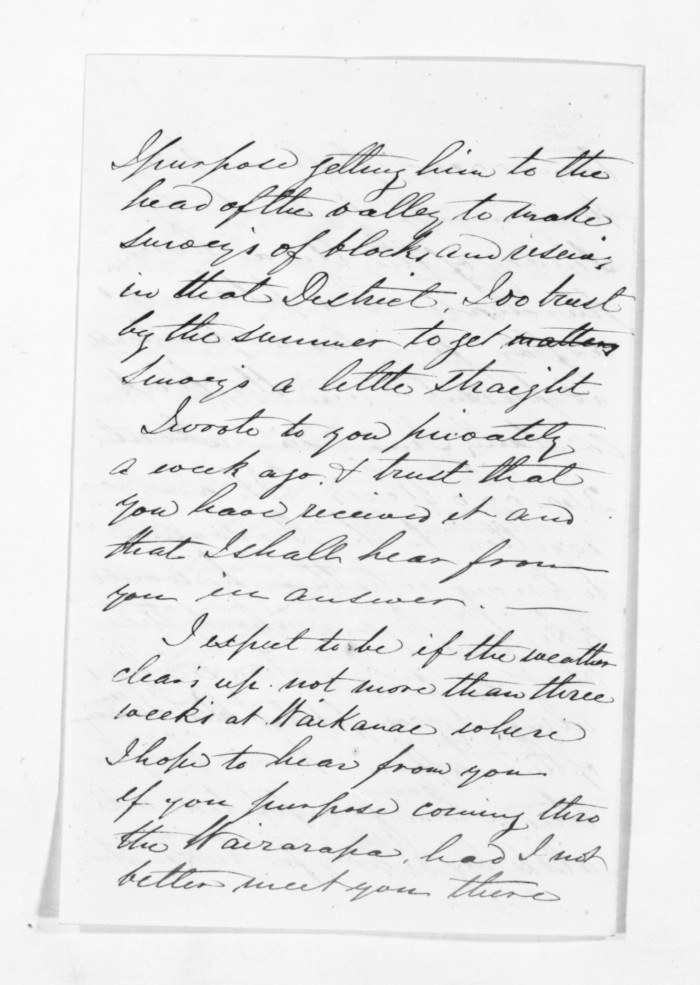 I purpose getting him to the
head of the valley to make
surveys of blocks and
in that District. I do trust
by the summer to get matters
surveys a little straight
I wrote to you privately
a week ago. & trust that
you have received it and
that I shall hear from
you in answer. —
I expect to be if the weather
clears up. not more than three
weeks at Waikanae where
I hope to hear from you
if you purpose coming thro
the Wairarapa. had I not
better meet you there